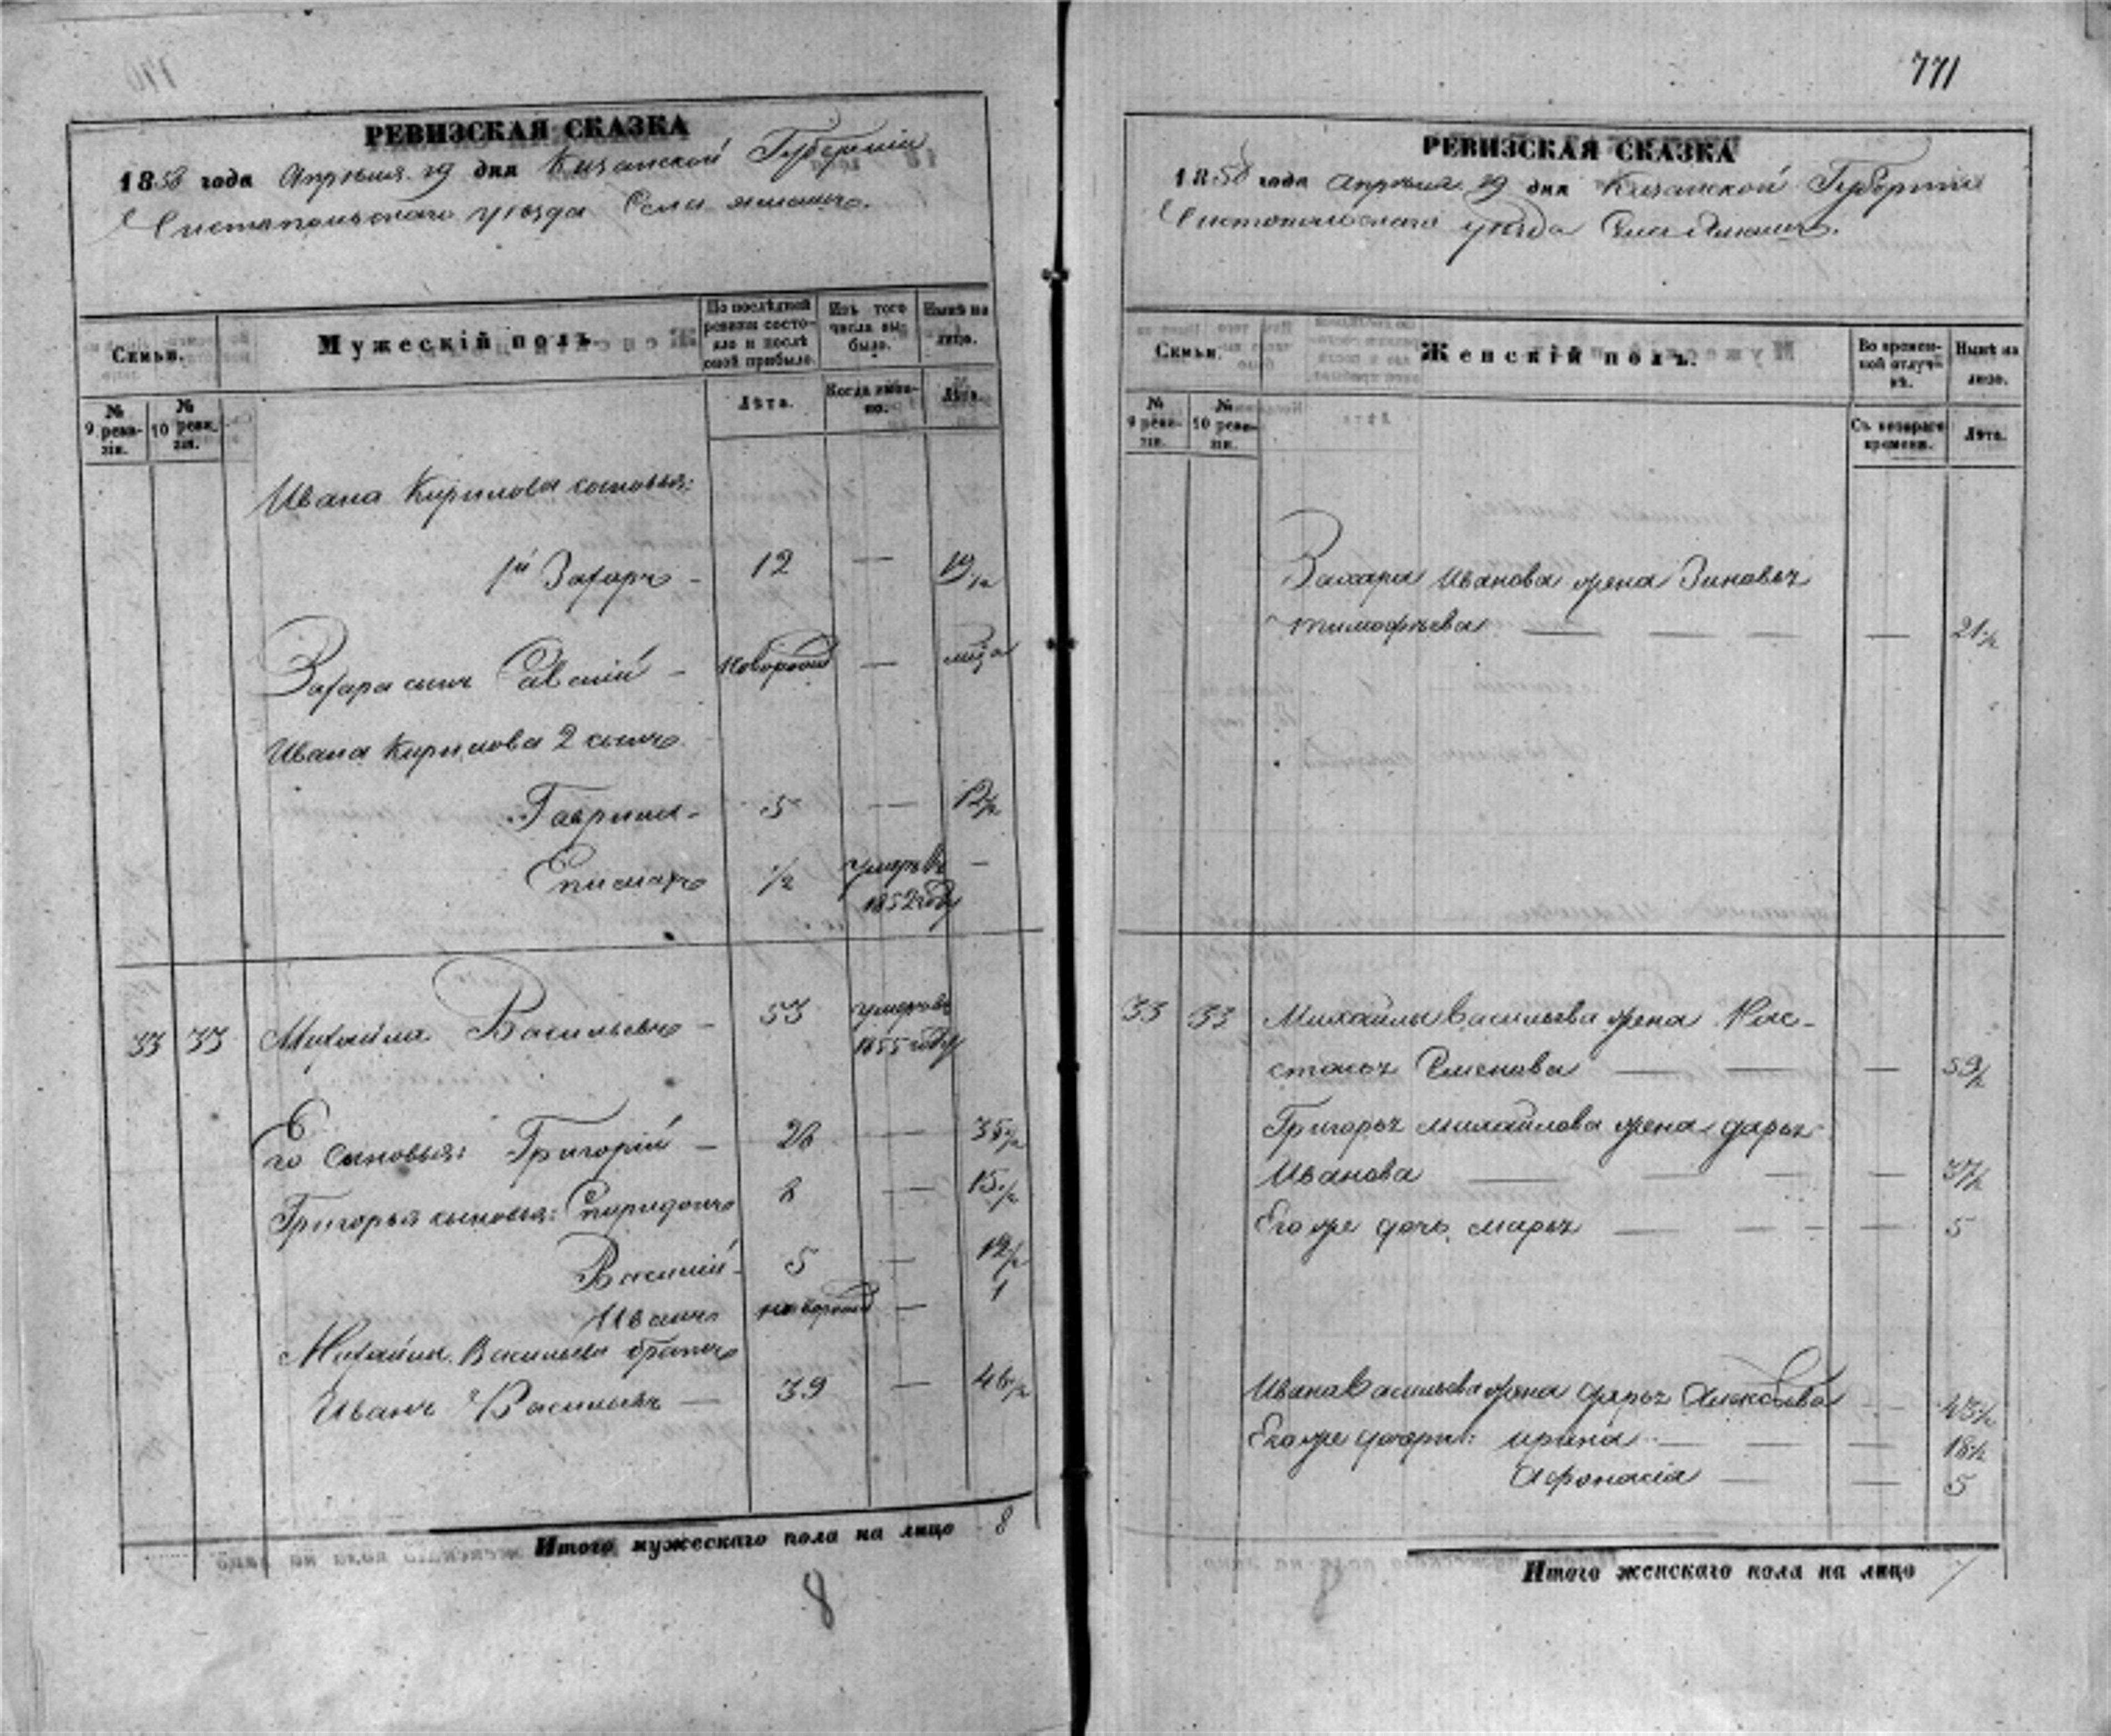 771
РЕВИЗСКАЯ СКАЗКА
1858 года Апреля 19 дня Казанской Губернии
Чистопольскаго уезда Села
Семьи.
Мужескій полъ.
По послѣдней ревизіи состояло и послѣ оной прибыло.
Изъ того числа выбыло.
Нынѣ на лицо.
№ 9 ревизіи.
№ 10 ревизіи.
Лѣта.
Когда именно.
Лѣта.
Ивана Кирилова сыновья:
1й Захаръ - 12 — 19 1/2
Захара сынъ Савелій - новорожд — м-ца
Ивана Кирилова 2 сынъ
Гаврила - 5 — 12 1/2
Епимахъ 1/2 умеръ въ —
1852 году
33 33 Михайла Васильевъ - 53 умеръ въ
1855 году
Его сыновья: Григорій — 28 — 35 1/2
Григорья сыновья: Спиридонъ 8 — 15 1/2
Василій - 5 — 12 1/2
Иванъ новорожд — 1
Михайлы Васильева братъ
Иванъ Васильевъ — 39 — 46 1/2
Итого мужескаго пола на лицо 8
8
РЕВИЗСКАЯ СКАЗКА
1858 года Апреля 19 дня Казанской Губернии
Чистопольскаго уезда Села
Семьи.
Женскій полъ.
Во временной отлучкѣ.
Нынѣ на лицо.
№ 9 ревизіи.
№ 10 ревизіи.
Съ котораго времени.
Лѣта.
Захара Иванова жена Зиновья
Тимофеева — — — — 21 1/2
33 33 Михайлы Васильева жена Нас-
тасья Семенова — — — 59 1/2
Григорья Михайлова жена Дарья
Иванова — — — — 37 1/2
Его же дочь Марья — — - — 5
Ивана Васильева жена Дарья Алексѣева — 45 1/2
Его же дочери: Ирина — — — 18 1/2
Афонасія — — — 5
Итого женскаго пола на лицо 7